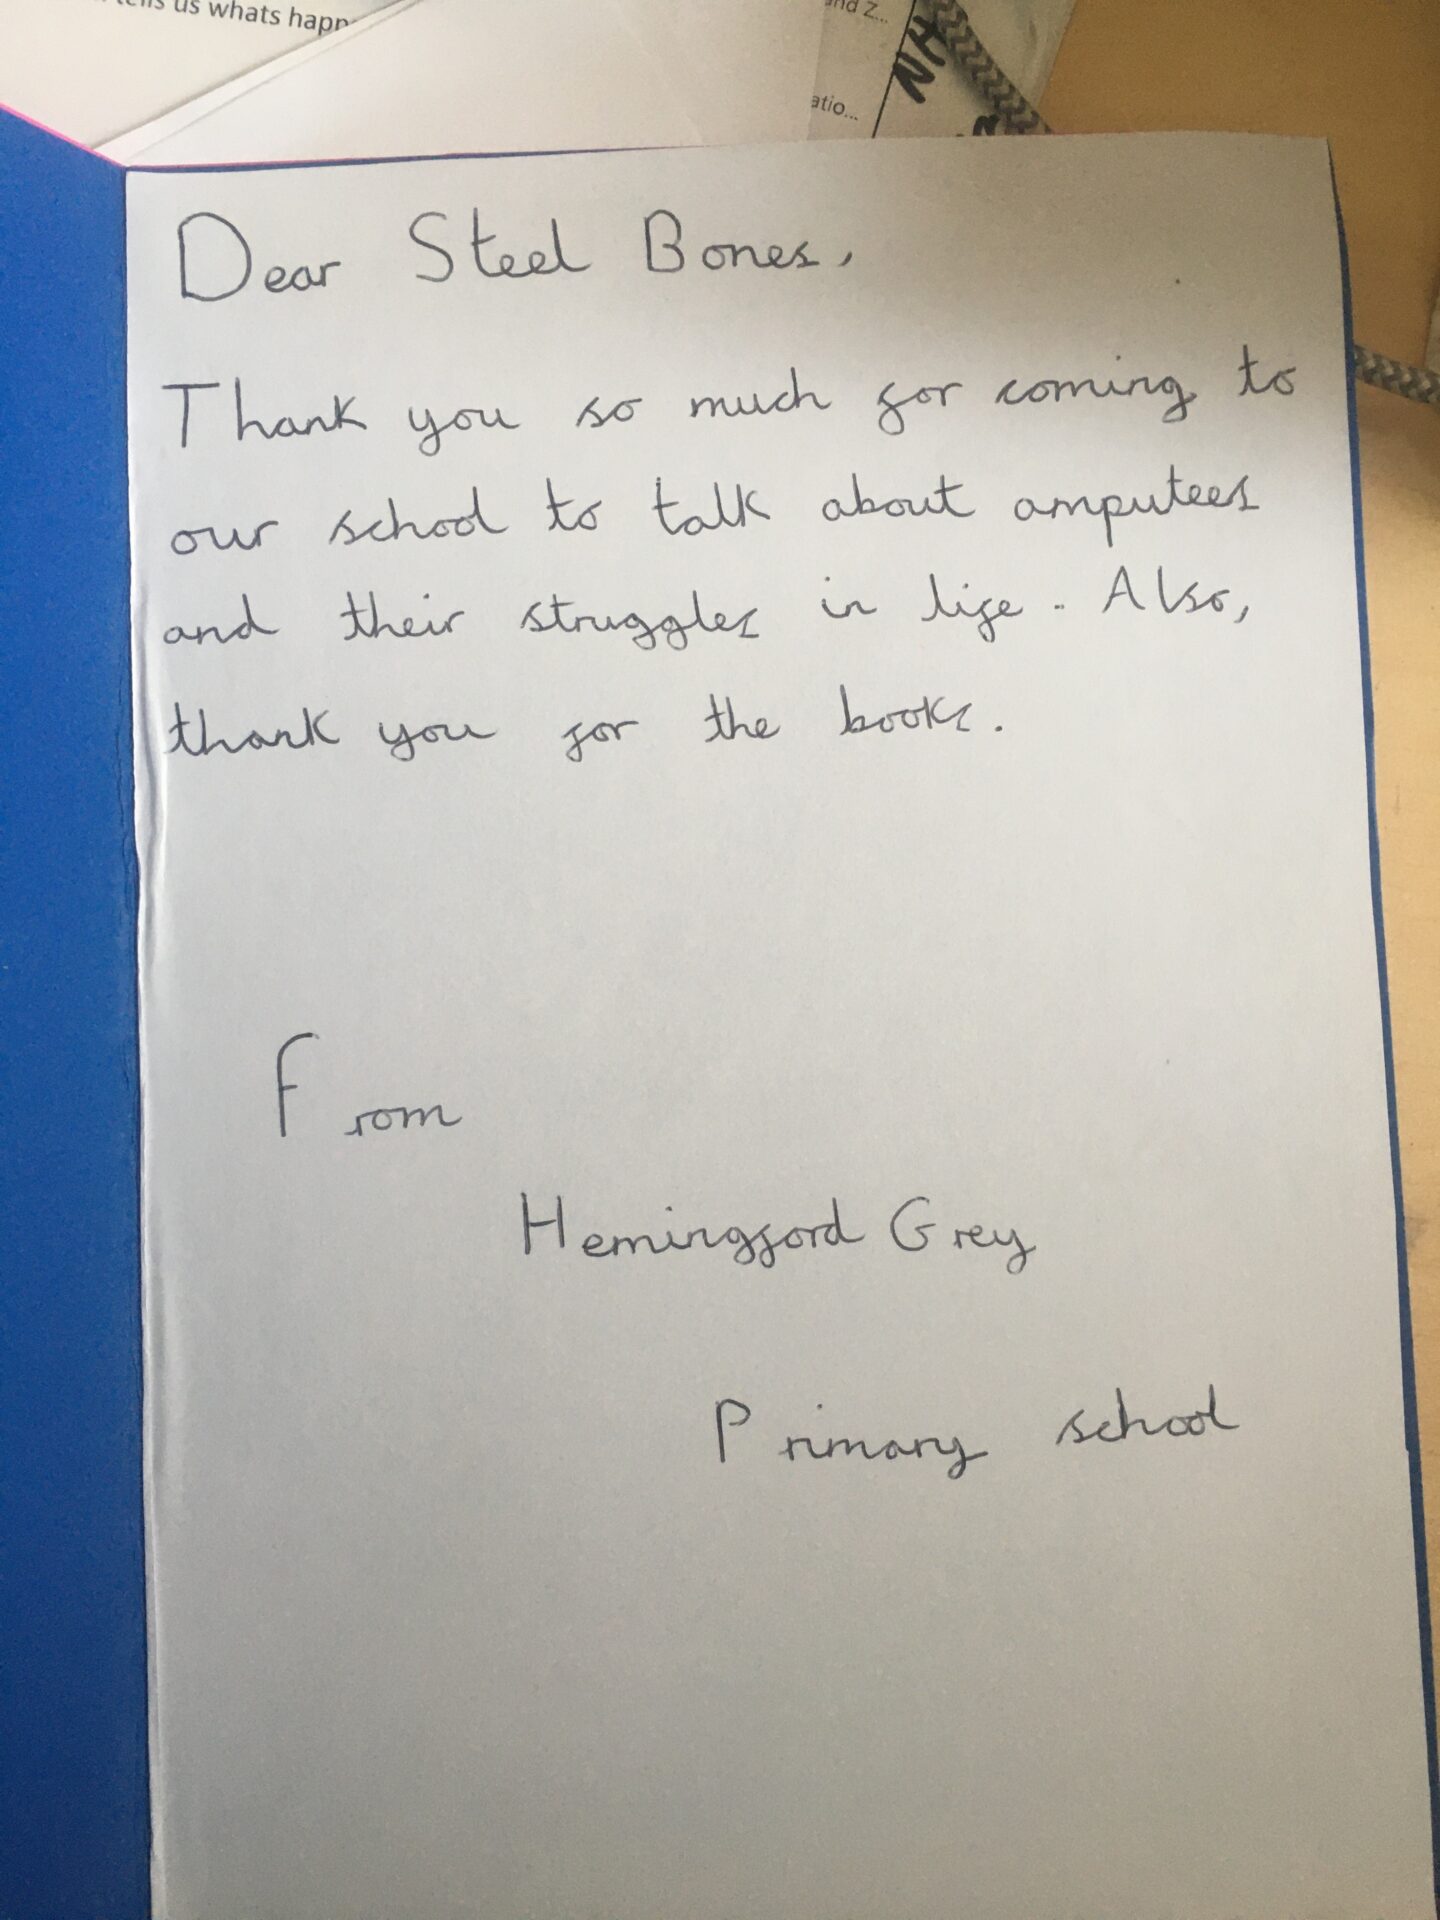 us whats happ
nd Z...
atio...
NH
Dear Steel Bones,
Thank you so much for coming to
our school to talk about amputees
and their struggles in life. Also,
thank you for the books.
From
Hemingford Grey
Primary school